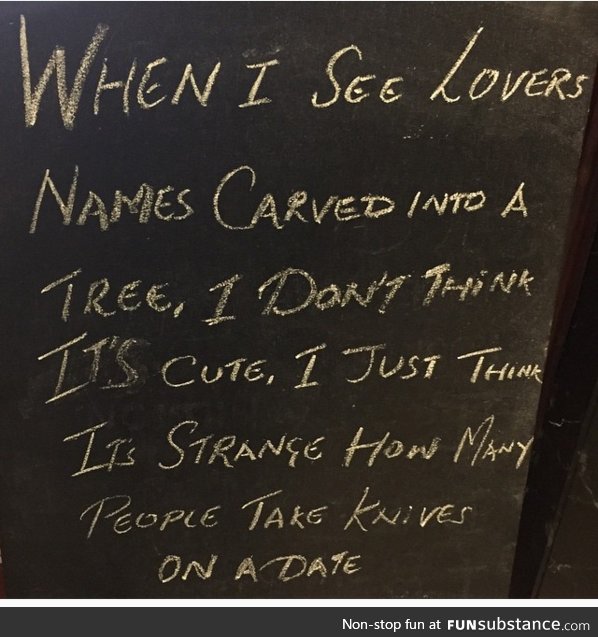 WHEN I SEE LOVERS
NAMES CARVED INTO A
TREE, I DON'T THINK
IT'S CUTE, I JUST THINK
ITS STRANGE HOW MANY
PEOPLE TAKE KNIVES
ON A DATE
Non-stop fun at FUNsubstance.com